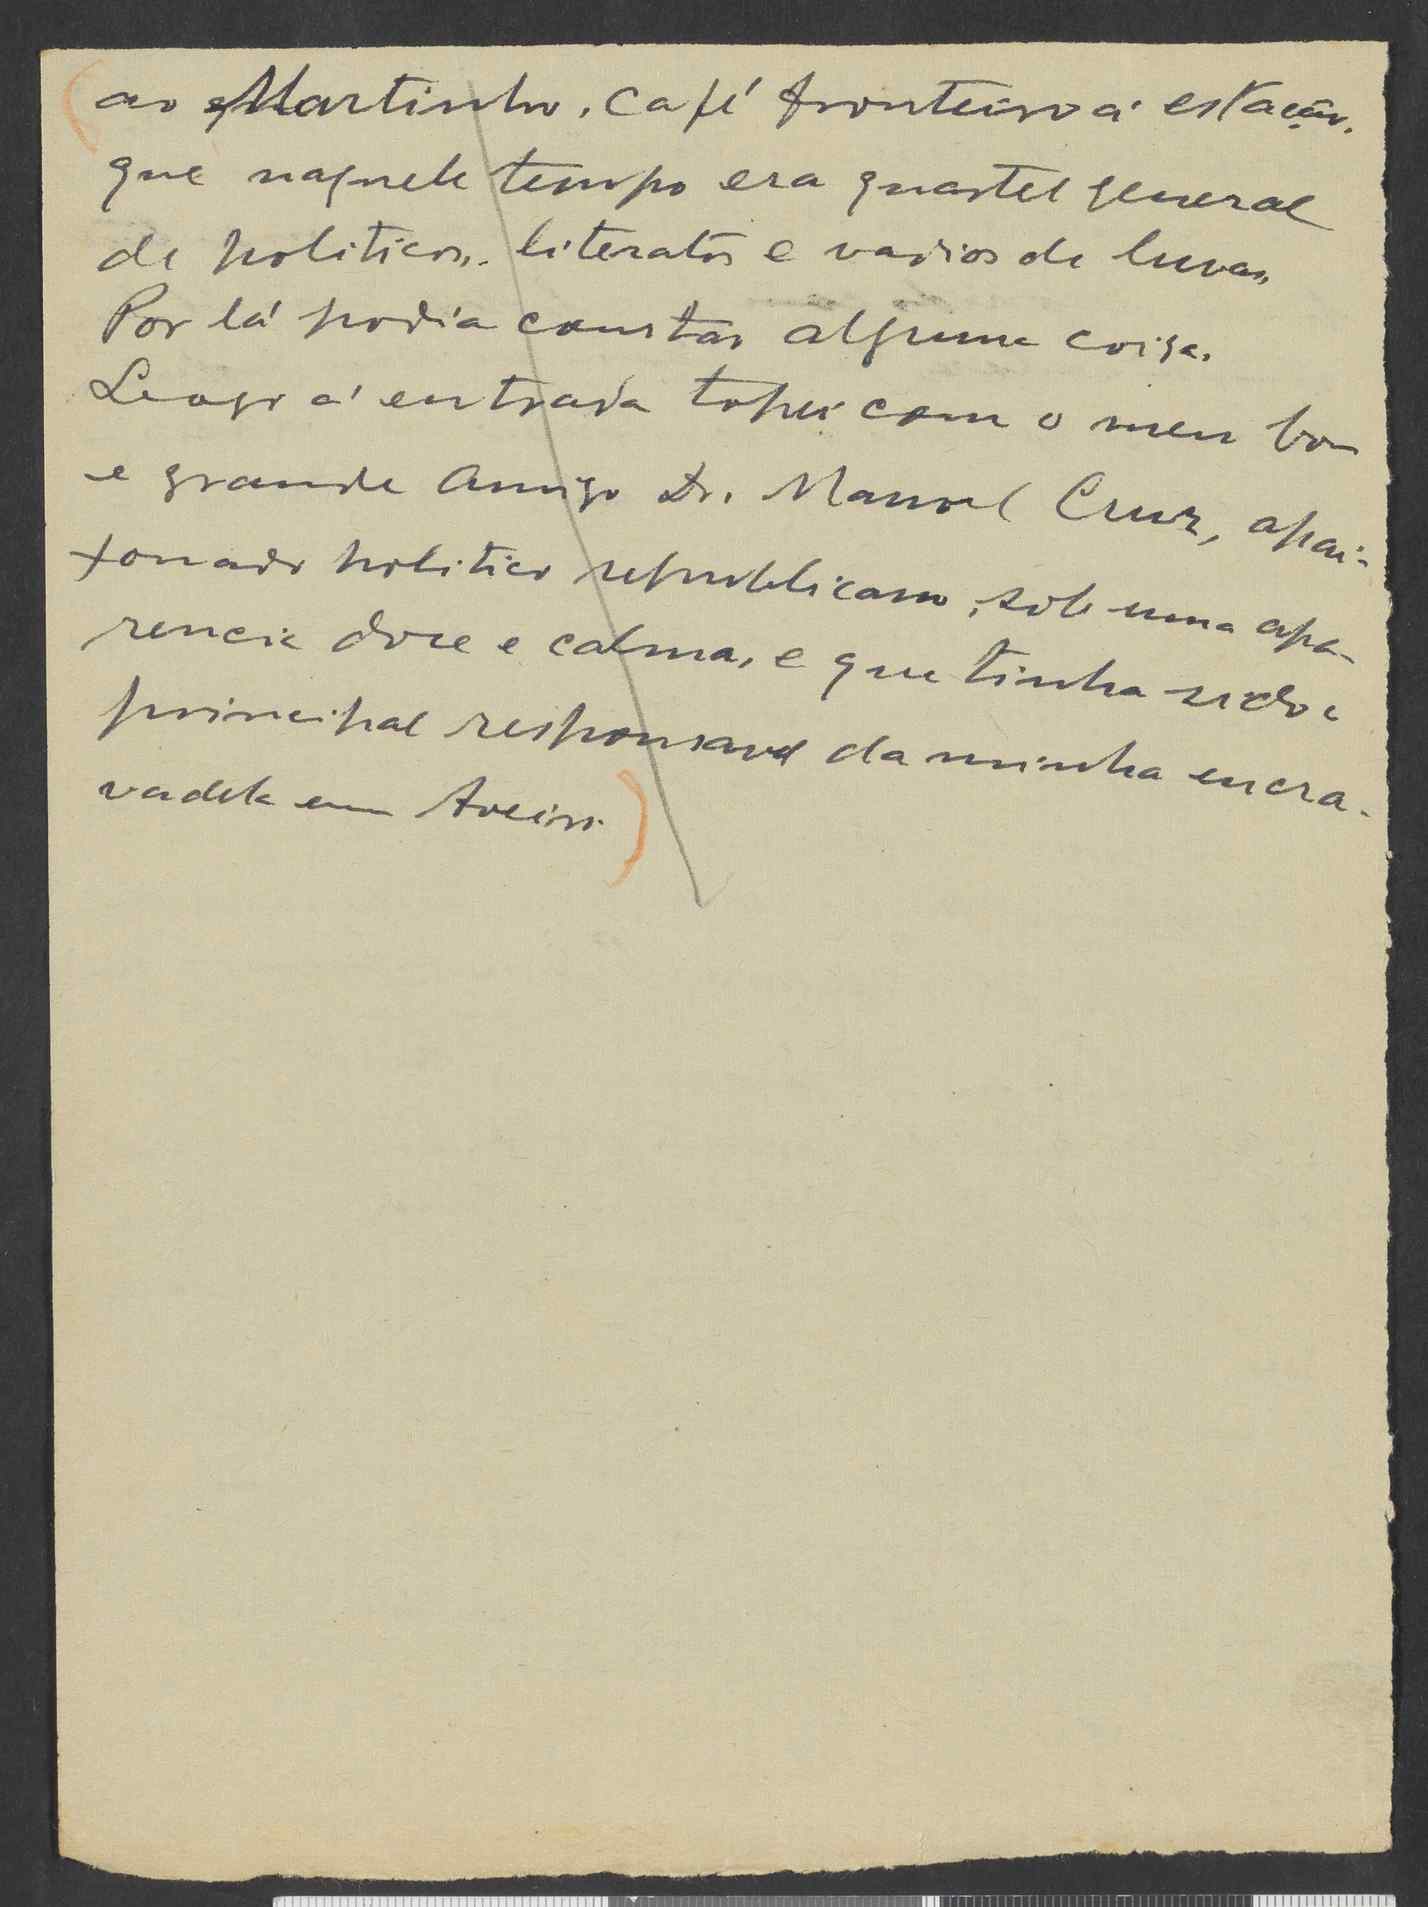 (ao Martinho, café fronteiro á estação,
que naquele tempo era quartel general
de politicos, literatos e vadios de luvas.
Por lá podia constar alguma coisa.
Leogo á entrada topei com o meu bom
e grande amigo Dr. Manoel Cruz, apai-
xonado politico republicano, sob uma apa-
rencia doce e calma, e que tinha sido o
principal responsavel da minha encra-
vadela em Aveiro.)